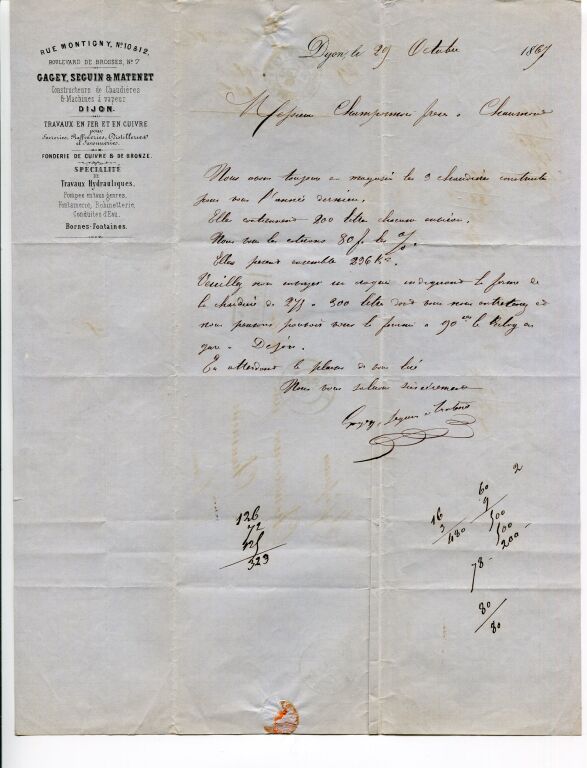 RUE MONTIGNY, Nos 10 & 12.
BOULEVARD DE BROSSES, No 7
GAGEY, SEGUIN & MATENET
Constructeurs de Chaudières
& Machines à vapeur
DIJON.
TRAVAUX EN FER ET EN CUIVRE
pour
Sucreries, Raffineries, Distilleries
et Savonneries.
FONDERIE DE CUIVRE & DE BRONZE.
SPÉCIALITÉ
DE
Travaux Hydrauliques,
Pompes en tous genres,
Fontainerie, Robinetterie,
Conduites d'Eau,
Bornes-Fontaines.
Dijon, le 29 Octobre 1867
Messieurs Champonnois frères à Chaumont
Nous avons toujours en magasin les 3 chaudières construites
pour vous l'année dernière.
Elles contiennent 200 litres chacune environ.
Nous vous les céderons 80 f. les %.
Elles pèsent ensemble 296 Ks.
Veuillez nous envoyer un croquis indiquant la forme de
la chaudière de 275 à 300 litres dont vous nous entretenez et
nous pensons pouvoir vous la fournir à 90 le Kilog en
gare à Dijon.
En attendant le plaisir de vous lire
Nous vous saluons sincèrement
Gagey, Seguin & Matenet
126
72
125
323
2
60
9
16
3
480
500
500
200
78
80
80